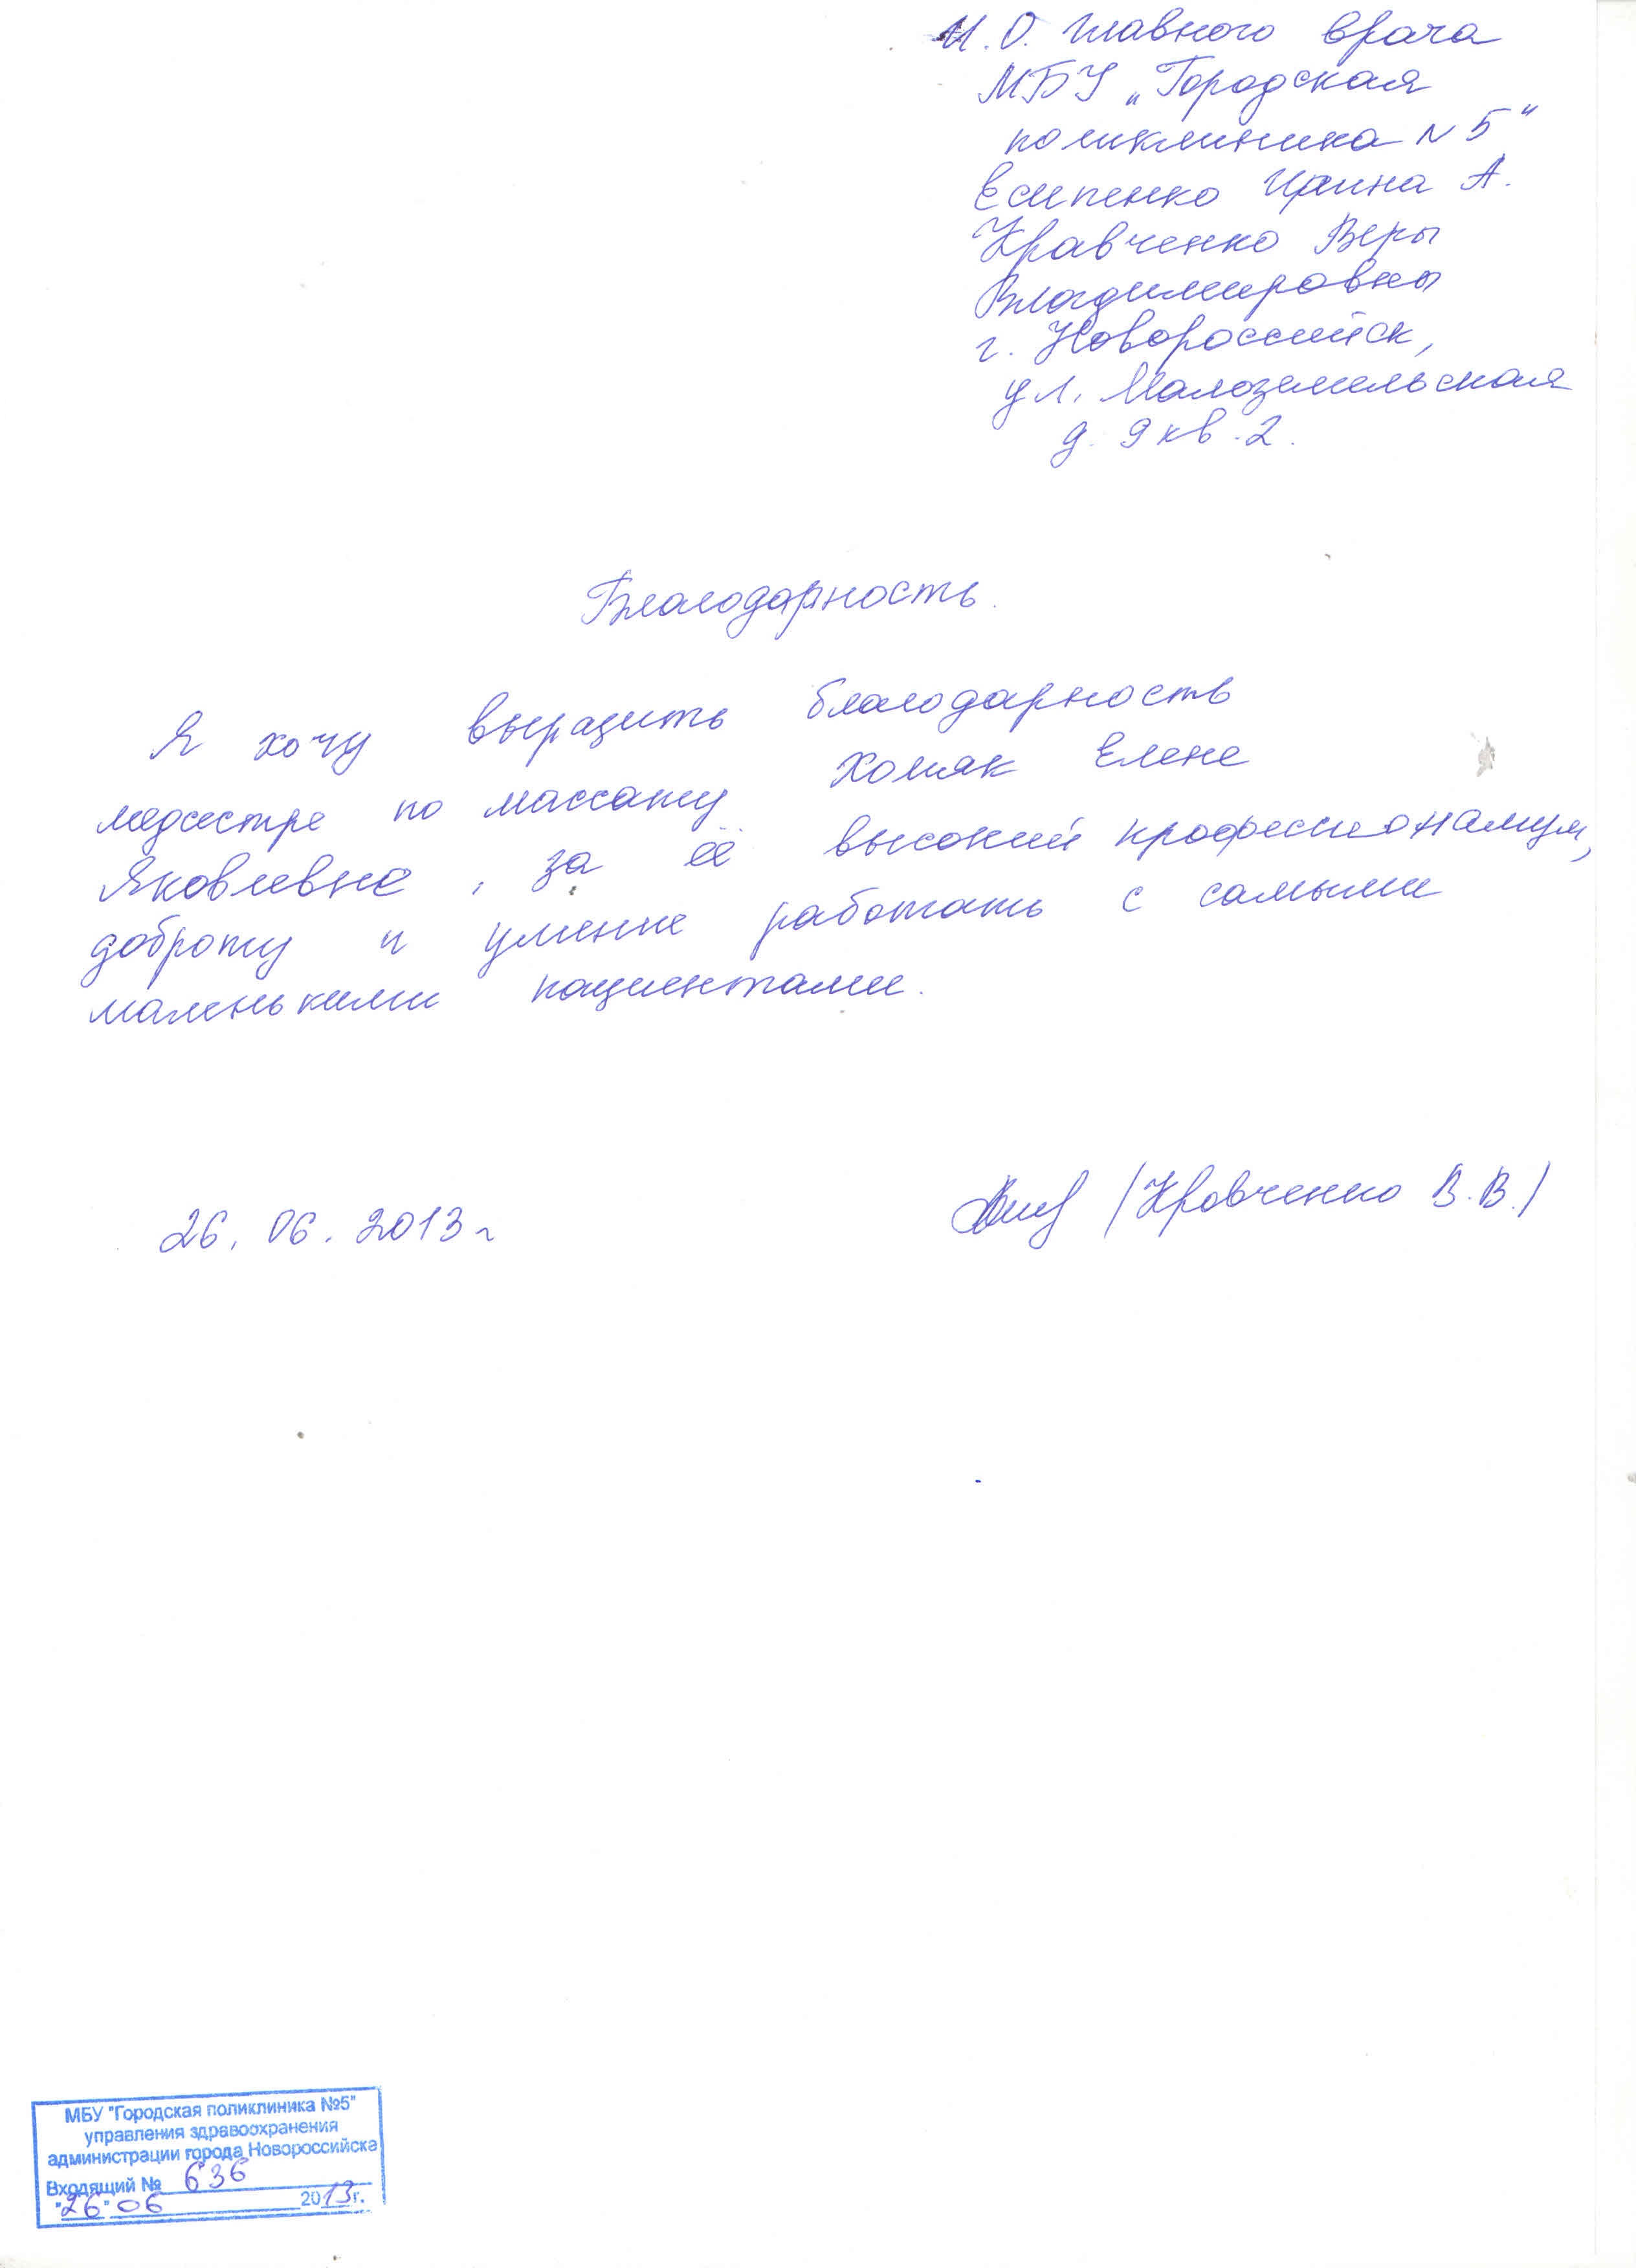 И.О. главного врача
МБУ „Городская
поликлиника N 5"
Есипенко Ирина А.
Кравченко Веры
Владимировны
г. Новороссийск,
ул. Малоземельская
д. 9 кв. 2.
Благодарность.
Я хочу выразить благодарность
медсестре по массажу Хомяк Елене
Яковлевне, за её высокий профессионализм,
доброту и умение работать с самыми
маленькими пациентами.
26.06.2013г
/Кравченко В.В./
МБУ "Городская поликлиника №5"
управления здравоохранения
администрации города Новороссийска
Входящий № 636
"26" 06 2013г.